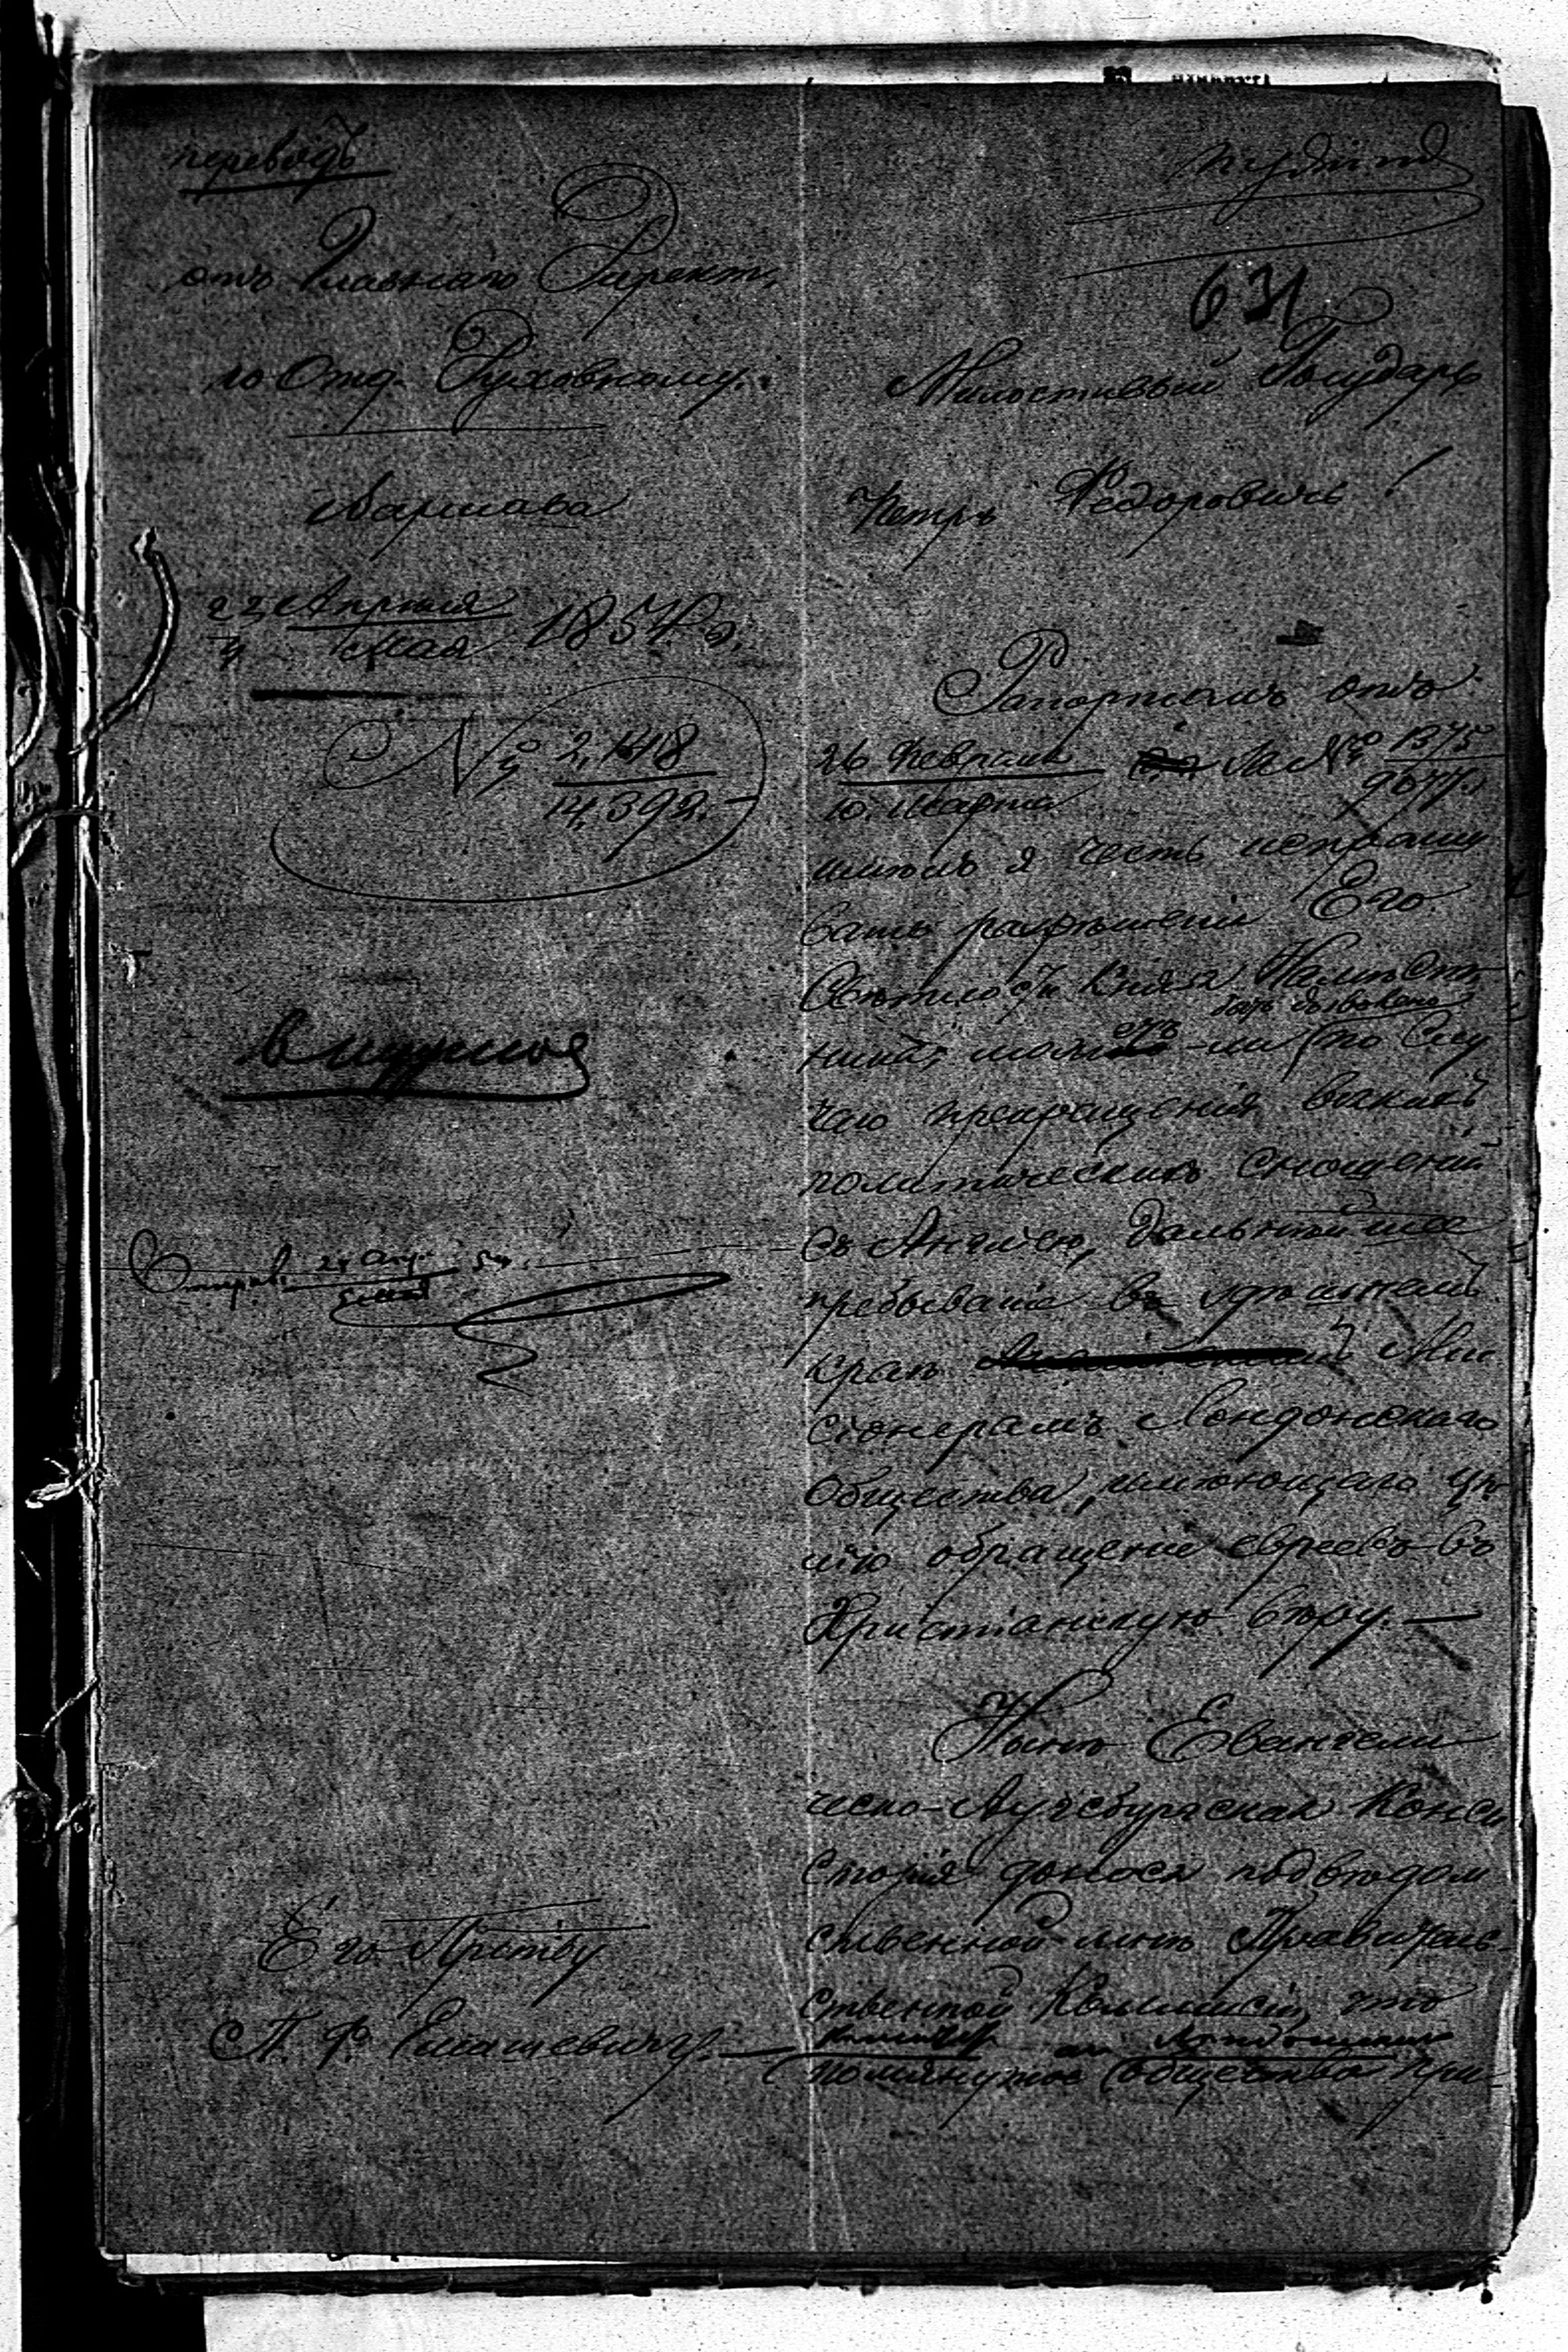 переводъ
отъ Главнаго Директ.
по Отд. Духовному.
Варшава
22 Апрѣля
4 Мая 1854 г.
№ 2,148
14,392.
Отправ. 24 Апр. 54.
Его Пр-тву
П. Ф.
631
Милостивый Государь
Петръ Федоровичъ!
Рапортомъ отъ
26 Февраля за № 1375
10 Марта 9677.
имѣлъ я честь испраши
вать разрѣшенія Его
Свѣтлости Князя Намѣст
ника, можетъ-ли быть дозволено по слу
чаю прекращенія всякихъ
политическихъ сношеній
съ Англіею, дальнѣйшее
пребываніе въ здѣшнемъ
краѣ Мис
сіонерамъ Лондонскаго
Общества, имѣющаго цѣ
лію обращеніе евреевъ въ
Христіанскую вѣру. —
Нынѣ Евангели
ческо-Аугсбургская Конси
сторія донося подвѣдом
ственной мнѣ Правитель-
ственной Коммисіи, что
помянутое Общество при-